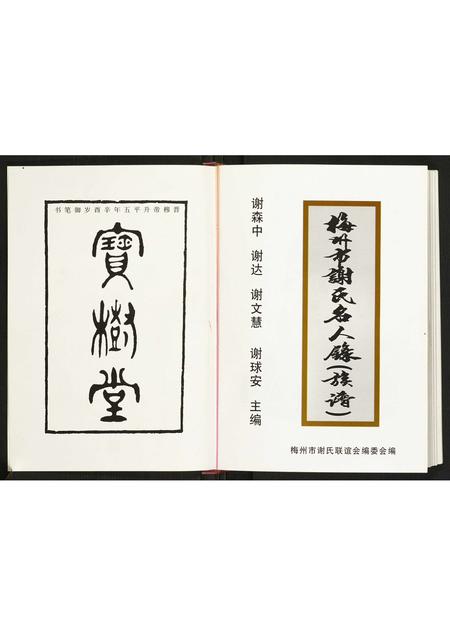 晋穆帝升平五年辛酉岁御笔书
寶樹堂
梅州市謝氏名人録(族譜)
谢森中 谢达 谢文慧 谢球安 主编
梅州市谢氏联谊会编委会编